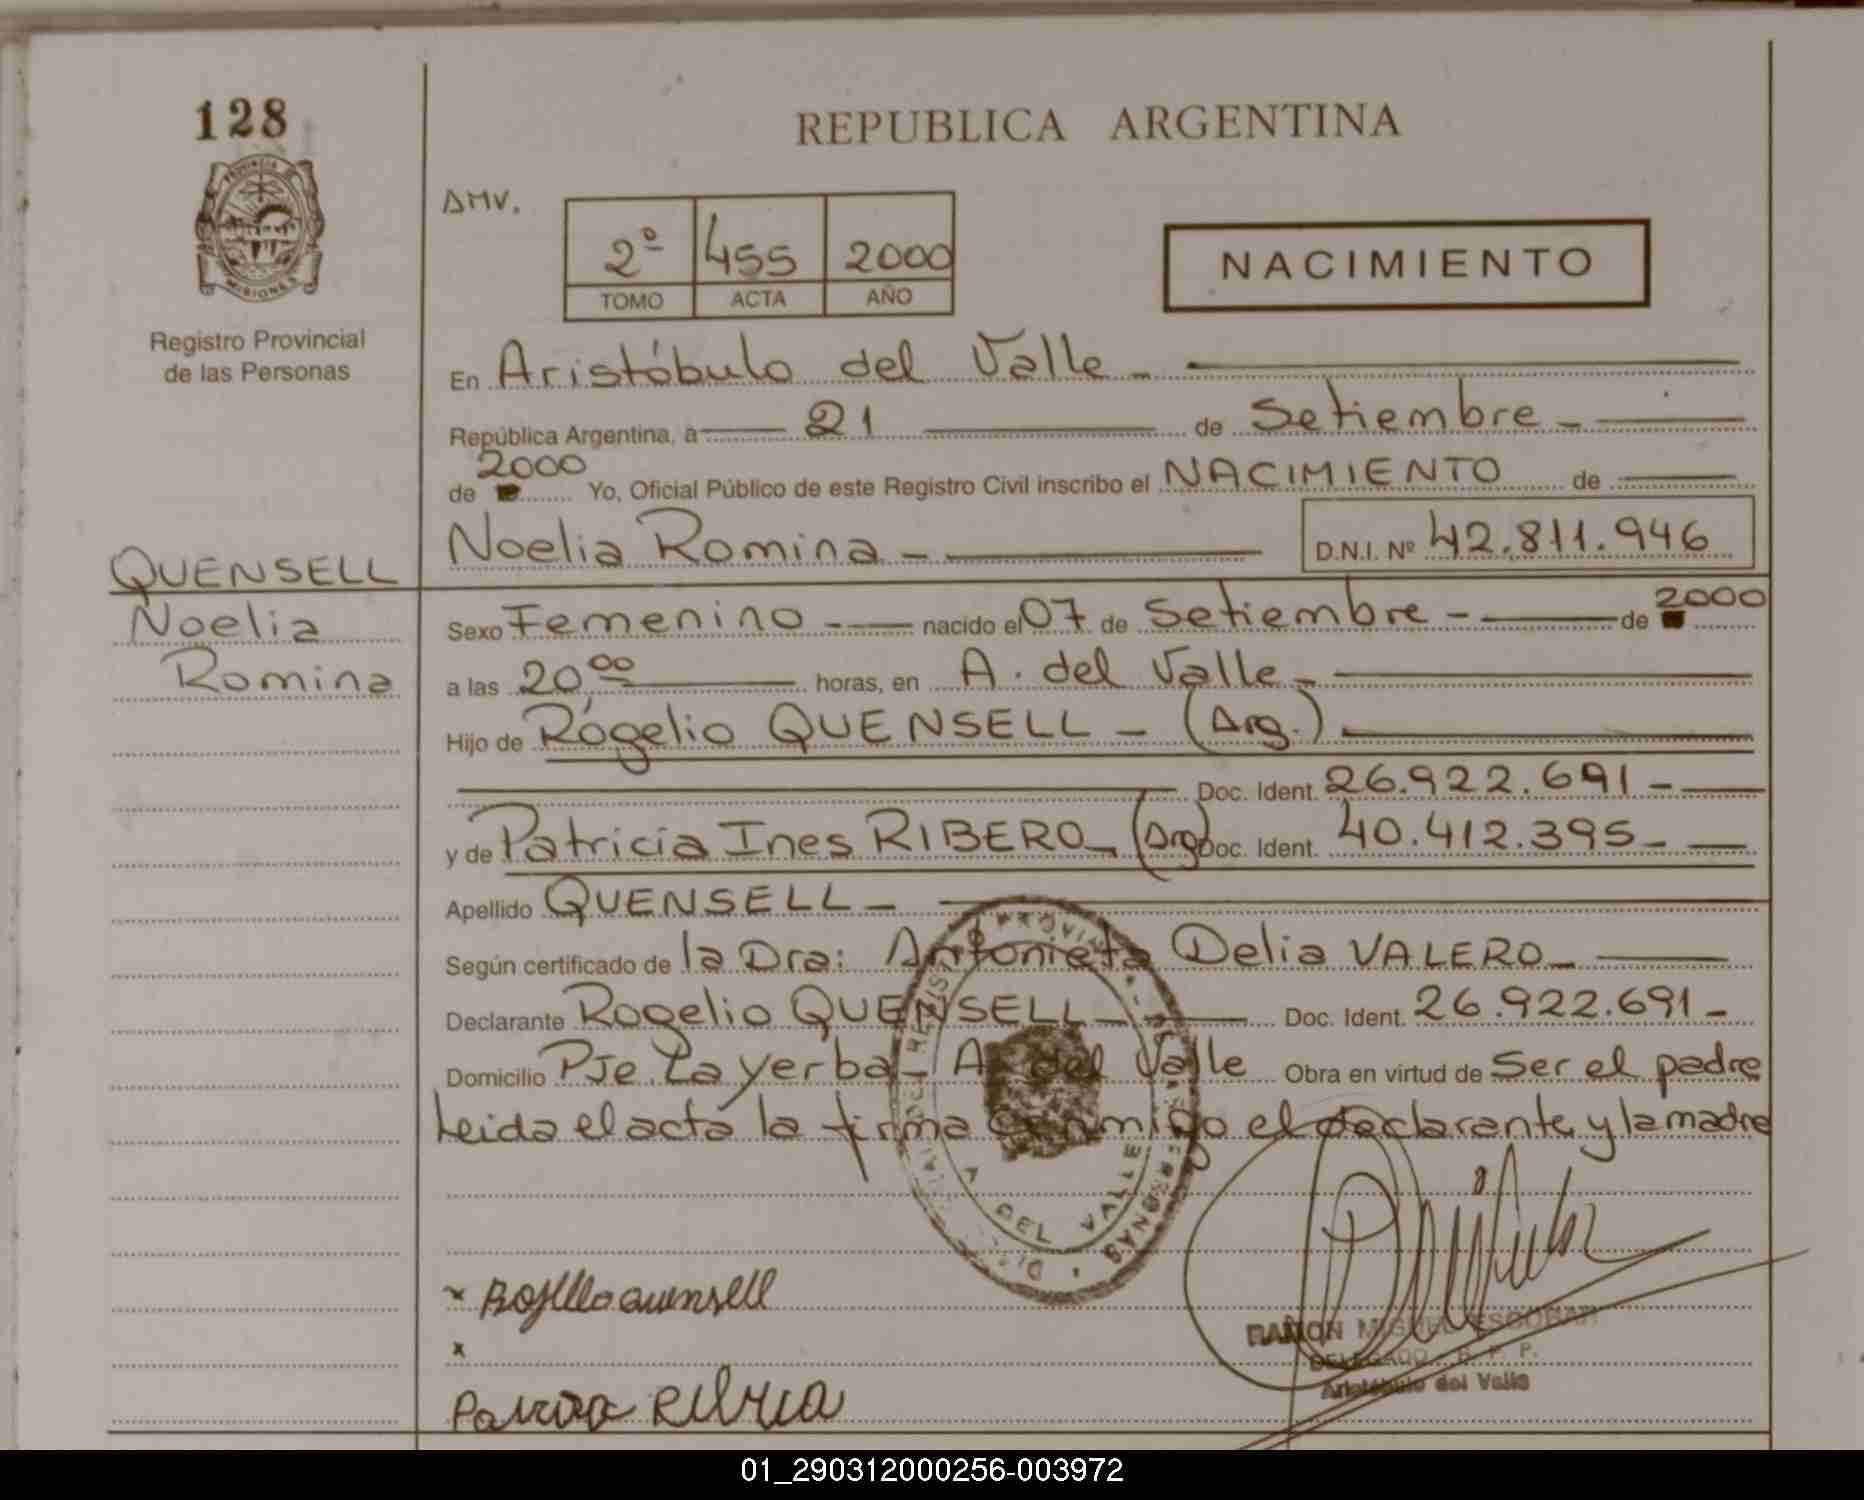 128
REPUBLICA ARGENTINA
PROVINCIA DE
MISIONES
Registro Provincial
de las Personas
AMV.
2º 455 2000
TOMO ACTA AÑO
NACIMIENTO
En Aristóbulo del Valle -
República Argentina, a 21 de Setiembre -
de 2000 Yo, Oficial Público de este Registro Civil inscribo el NACIMIENTO de
Noelia Romina - D.N.I. Nº 42.811.946
QUENSELL
Noelia
Romina
Sexo Femenino - nacido el 07 de Setiembre - de 2000
a las 20,00 horas, en A. del Valle -
Hijo de Rogelio QUENSELL - (Arg.)
Doc. Ident. 26.922.691 -
y de Patricia Ines RIBERO - (Arg) Doc. Ident. 40.412.395 -
Apellido QUENSELL -
Según certificado de la Dra: Antonieta Delia VALERO -
Declarante Rogelio QUENSELL - Doc. Ident. 26.922.691 -
Domicilio Pje. La Yerba - A. del Valle Obra en virtud de Ser el padre
Leida el acta la firma conmigo el declarante y la madre
A. DEL VALLE
x Quensell
x
RAMON MIGUEL ESCOBAR
DELEGADO R. P. P.
Aristóbulo del Valle
01_290312000256-003972